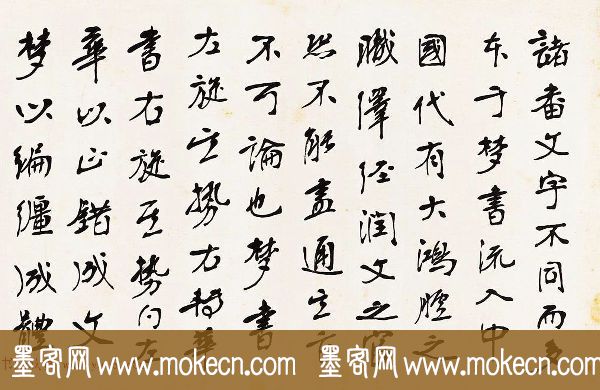 諸番文字不同而多
本于梦書流入中
國代有大鴻臚之
職繹经潤文之官
然不能盡通之
不可論也梦書
左旋之势右转華
書右旋至势向左
華以正錯成文
梦以編纏成體
墨客网 www.mokecn.com 墨客网 www.mokecn.com